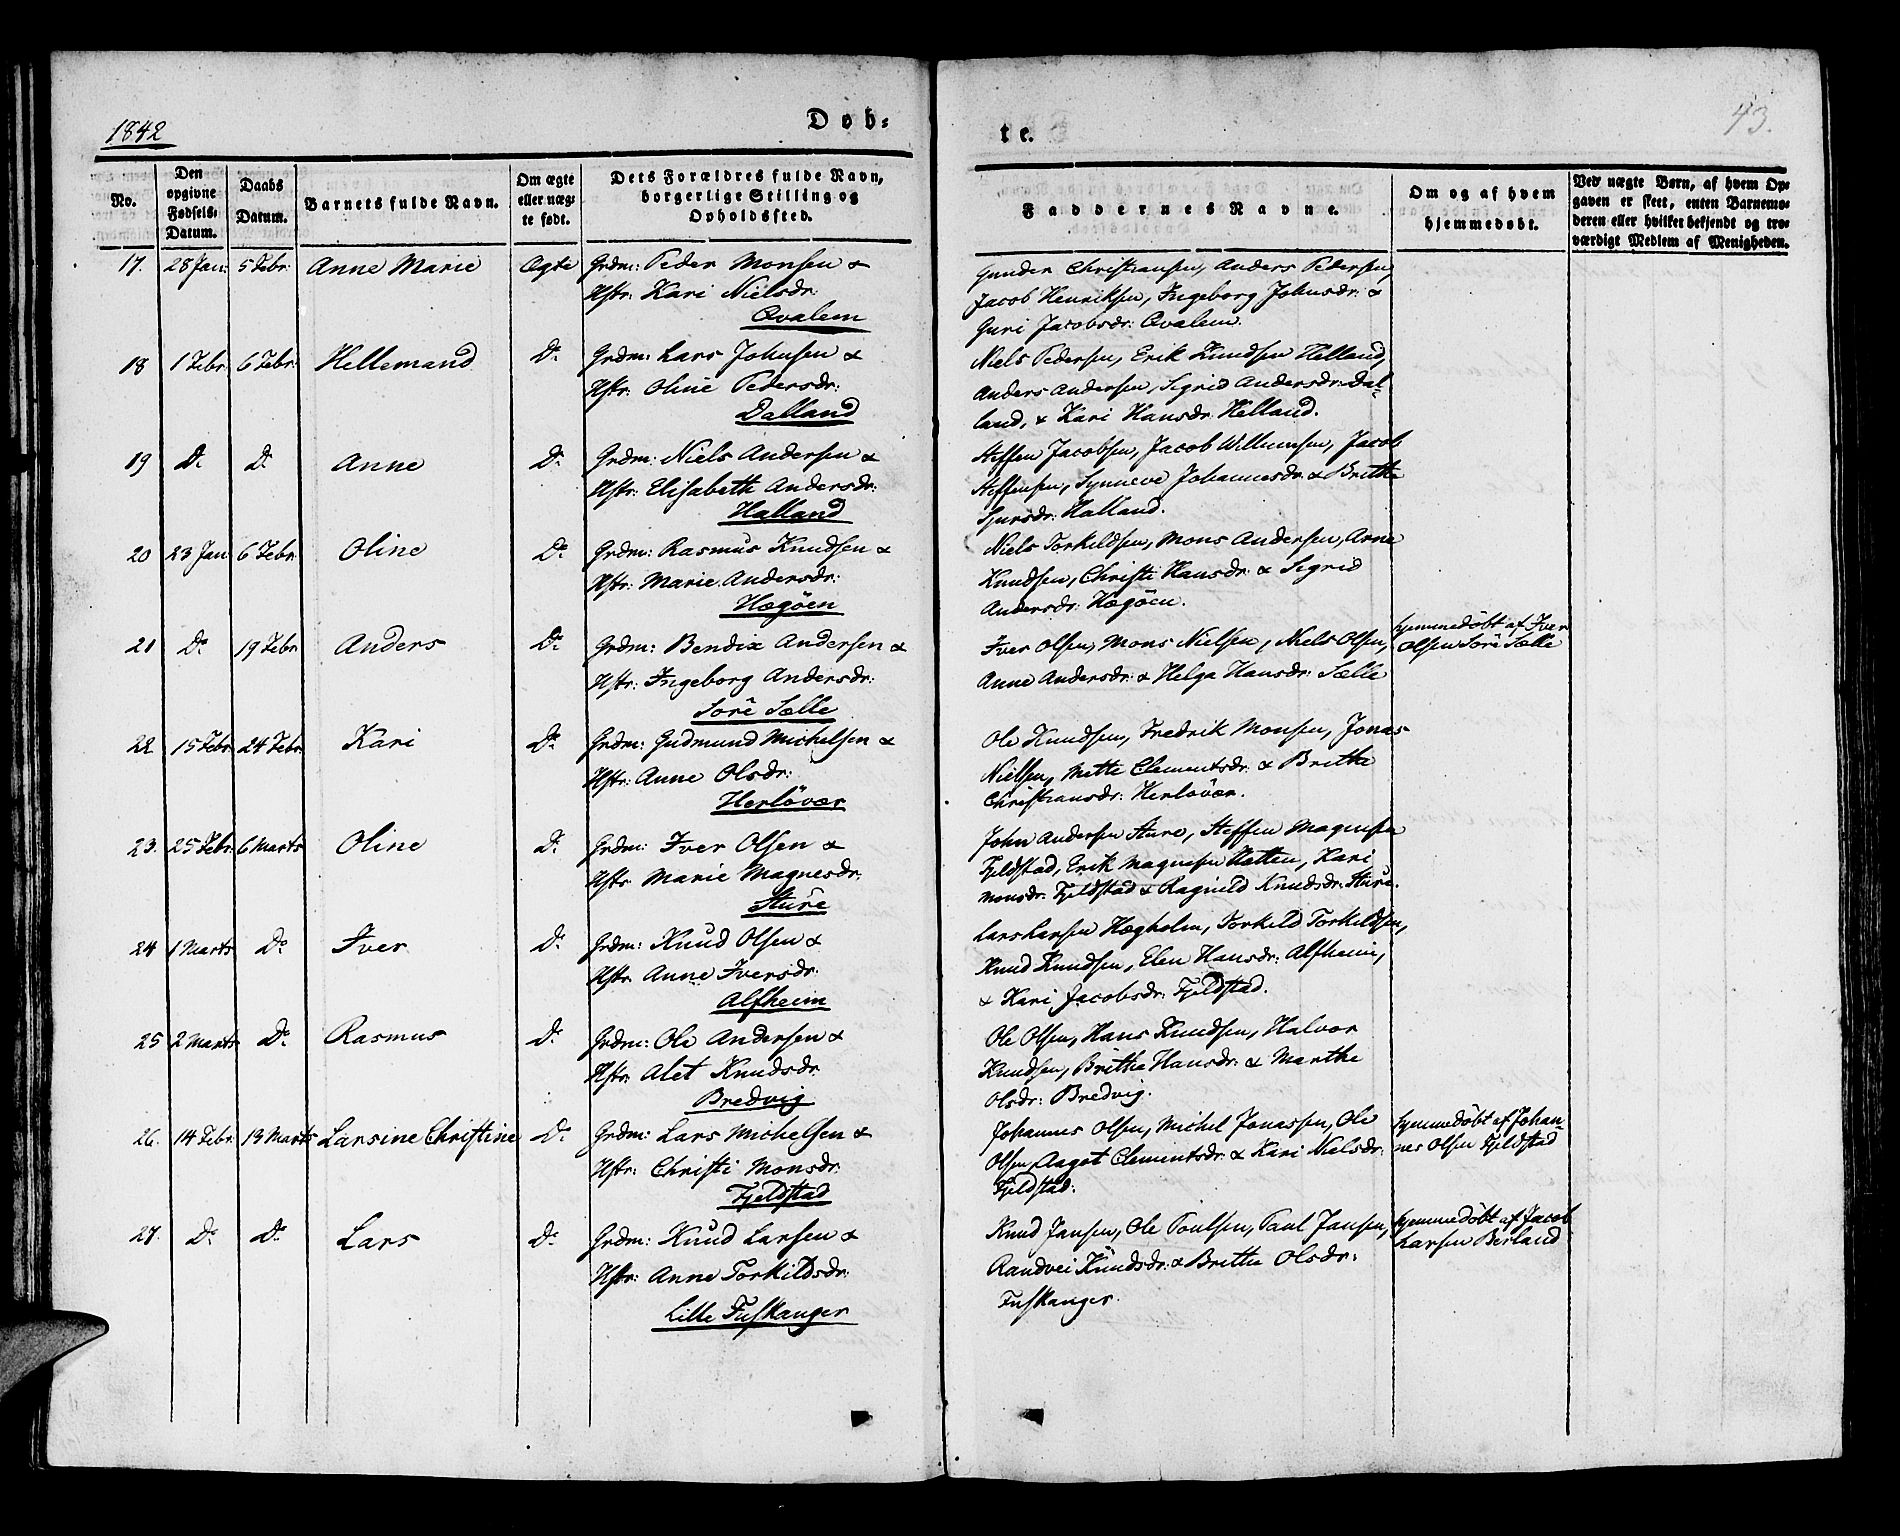 1842
Døb-
te.
43.
No.
Den opgivne Fødsels-Datum.
Daabs Datum.
Barnets fulde Navn.
Om ægte eller uægte født.
Dets Forældres fulde Navn, borgerlige Stilling og Opholdssted.
Faddernes Navne.
Om og af hvem hjemmedøbt.
Ved uægte Børn, af hvem Opgaven er skeet, enten Barnemoderen eller hvilket bekjendt og troværdigt Medlem af Menigheden.
17. 28 Jan: 5 Febr. Anne Marie Ægte Grdm: Peder Monsen &
Hstr: Kari Nielsdr:
Qvalem
Gunder Christiansen, Anders Pedersen,
Jacob Henriksen, Ingeborg Johnsdr: &
Guri Jacobsdr: Qvalem.
18 1 Febr. 6 Febr. Hellemand Do Grdm: Lars Johnsen &
Hstr: Oline Pedersdr:
Dalland
Niels Pedersen, Erik Knudsen Helland,
Anders Andersen, Sigrid Andersdr: Dal-
land, & Kari Hansdr. Helland.
19 Do Do Anne Do Grdm: Niels Andersen &
Hstr: Elisabeth Andersdr:
Halland
Steffen Jacobsen, Jacob Willumsen, Jacob
Steffensen, Synneve Johannesdr: & Britha
Sjursdr: Halland.
20 23 Jan 6 Febr. Oline Do Grdm: Rasmus Knudsen &
Hstr: Marie Andersdr:
Hægøen
Niels Torkildsen, Mons Andersen, Arne
Knudsen, Christi Hansdr: & Sigrid
Andersdr: Hægøen.
21 Do 19 Febr. Anders Do Grdm: Bendix Andersen &
Hstr: Ingeborg Andersdr:
Søre Sælle
Iver Olsen, Mons Nielsen, Niels Olsen,
Anne Andersdr: & Helga Hansdr: Sælle
hjemmedøbt af Iver
Olsen Søre Sælle
22. 15 Febr. 24 Febr. Kari Do Grdm: Gudmund Michelsen &
Hstr: Anne Olsdr:
Herløvær
Ole Knudsen, Fredrik Monsen, Jonas
Nielsen, Mette Clementsdr: & Britha
Christiansdr: Herløvær.
23. 25 Febr. 6 Marts Oline Do Grdm: Iver Olsen &
Hstr Marie Magnesdr:
Sture
John Andersen Sture, Steffen Magnesen
Fjeldstad, Erik Magnesen Hatten, Kari
Monsdr. Fjeldstad & Ragnild Knudsdr: Sture.
24 1 Marts Do Iver Do Grdm: Knud Olsen &
Hstr Anne Iversdr:
Alfheim
Lars Larsen Hægholm, Torkild Torkildsen,
Knud Knudsen, Elen Hansdr: Alfheim,
& Kari Jacobsdr: Fjeldstad.
25 2 Marts Do Rasmus Do Grdm: Ole Andersen &
Hstr: Alet Knudsdr
Bredvig
Ole Olsen, Hans Knudsen, Halvor
Knudsen, Britha Hansdr: & Marthe
Olsdr: Bredvig.
26. 14 Febr. 13 Marts Larsine Christine Do Grdm: Lars Michelsen &
Hstr: Christi Monsdr:
Fjeldstad
Johannes Olsen, Michel Jonassen, Ole
Olsen, Aagot Clementsdr: & Kari Nielsdr:
Fjeldstad.
hjemmedøbt af Johan-
nes Olsen Fjeldstad
27. Do Do Lars Do Grdm: Knud Larsen &
Hstr: Anne Torkildsdr:
Lille Fuskanger
Knud Jansen, Ole Poulsen, Paul Jansen,
Randvei Knudsdr: & Britha Olsdr:
Fuskanger.
hjemmedøbt af Jacob
Larsen Berland